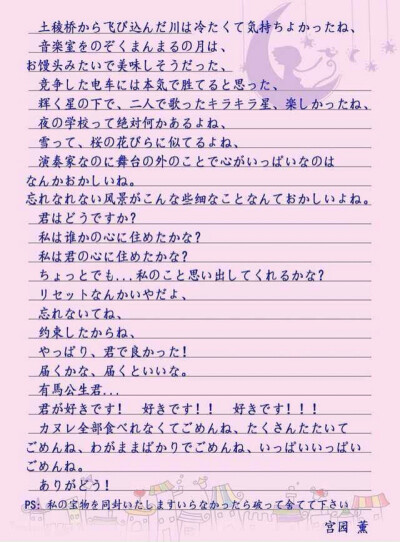 土稜桥から飞び込んだ川は冷たくて気持ちよかったね、
音楽室をのぞくまんまるの月は、
お馒头みたいで美味しそうだった、
竞争した电车には本気で胜てると思った、
辉く星の下で、二人で歌ったキラキラ星、楽しかったね、
夜の学校って绝対何かあるよね、
雪って、桜の花びらに似てるよね、
演奏家なのに舞台の外のことで心がいっぱいなのは
なんかおかしいね。
忘れなれない风景がこんな些细なことなんておかしいよね。
君はどうですか？
私は谁かの心に住めたかな？
私は君の心に住めたかな？
ちょっとでも...私のこと思い出してくれるかな？
リセットなんかいやだよ、
忘れないてね、
约束したからね、
やっぱり、君で良かった！
届くかな、届くといいな。
有馬公生君...
君が好きです！ 好きです！！ 好きです！！！
カヌレ全部食べれなくてごめんね、たくさんたたいて
ごめんね、わがままばかりでごめんね、いっぱいいっぱい
ごめんね。
ありがどう！
PS: 私の宝物を同封いたしますいらなかったら破って舍てて下さい
宫园 薫